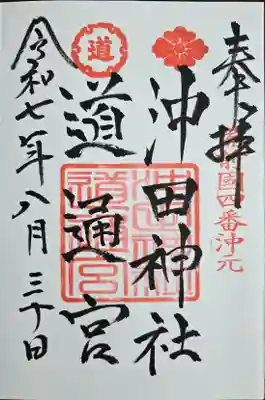 奉拝
備前國四番沖元
沖田神社
道通宮
道
令和七年八月三十日
沖田神社
道通宮